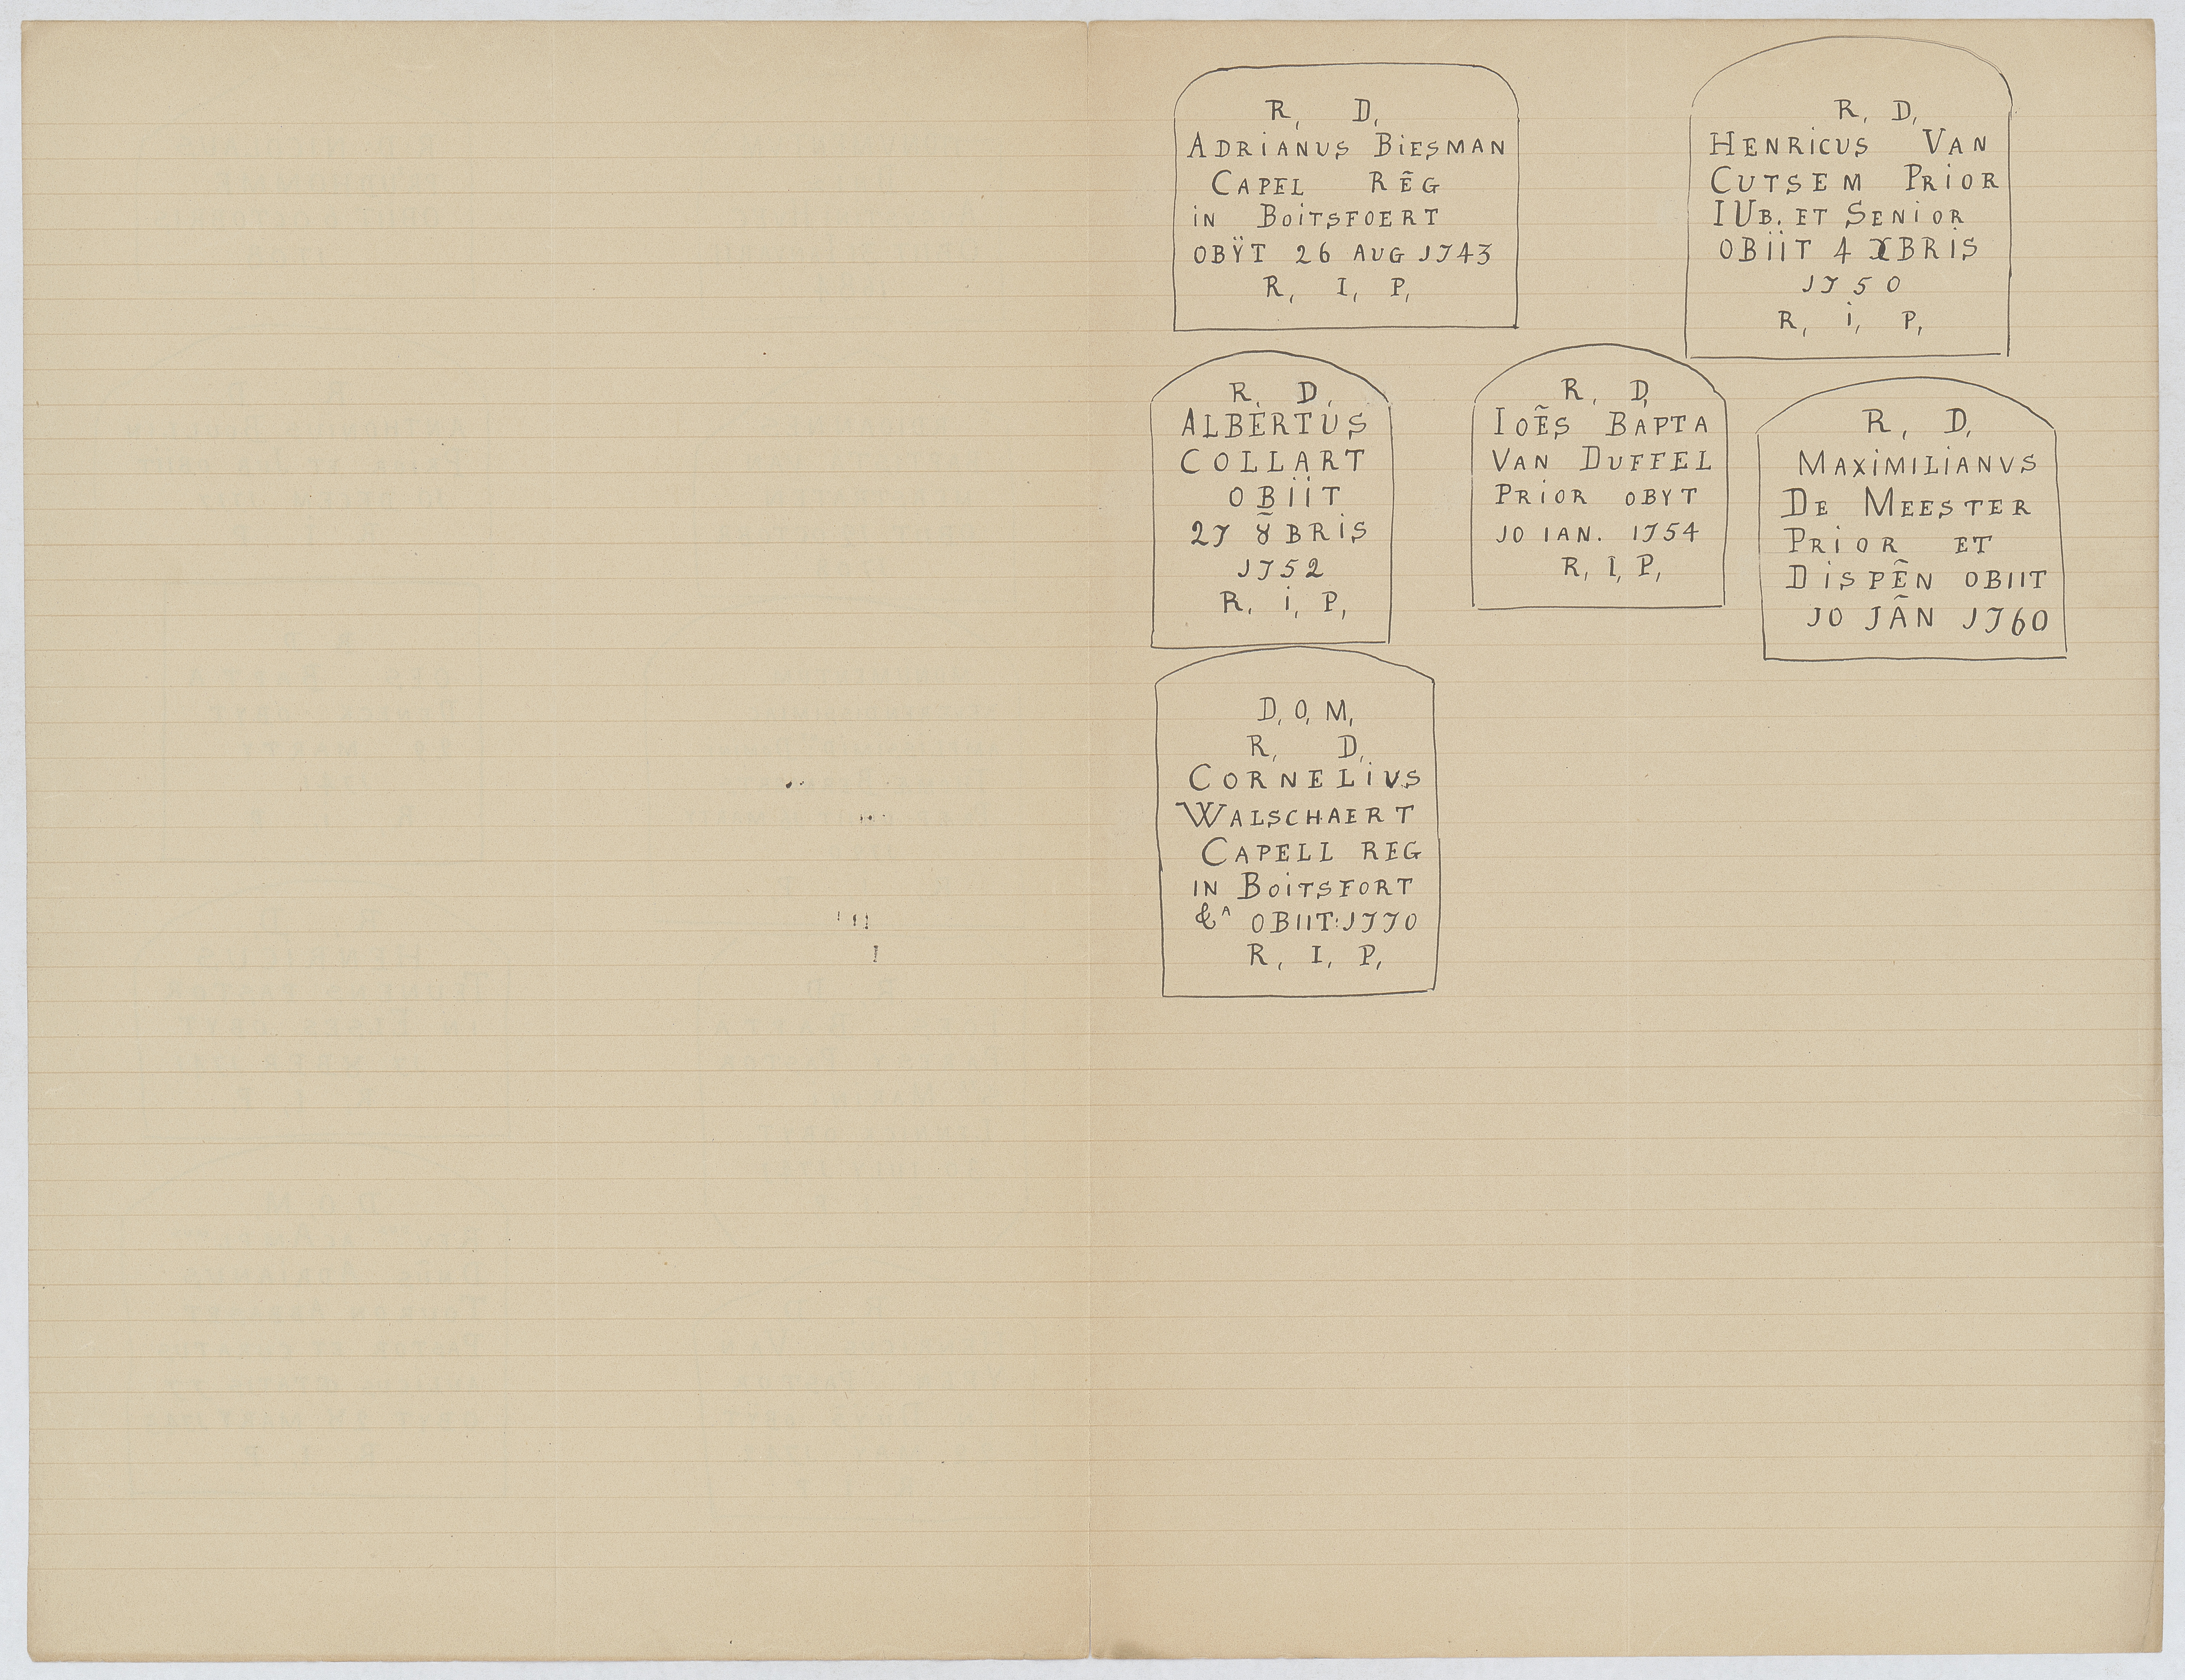 R, D,
ADRiANUS BiESMAN
CAPEL RẼG
iN BOiTSFOERT
OBŸT 26 AUG 1743
R, I, P,
R, D,
HENRiCUS VAN
CUTSEM PRiOR
IUB. ET SENiOR
OBïiT 4 XBRiS
1750
R, i, P,
R, D,
ALBERTUS
COLLART
OBiiT
27 8̃BRiS
1752
R, i, P,
R, D,
IOẼS BAPTA
VAN DUFFEL
PRiOR OBYT
10 IAN. 1754
R, I, P,
R, D,
MAXiMILiANVS
DE MEESTER
PRiOR ET
DiSPẼN OBIIT
10 JÃN 1760
D, O, M,
R, D,
CORNELiVS
WALSCHAERT
CAPELL REG
IN BOiTSFORT
&ᴬ OBIIT: 1770
R, I, P,